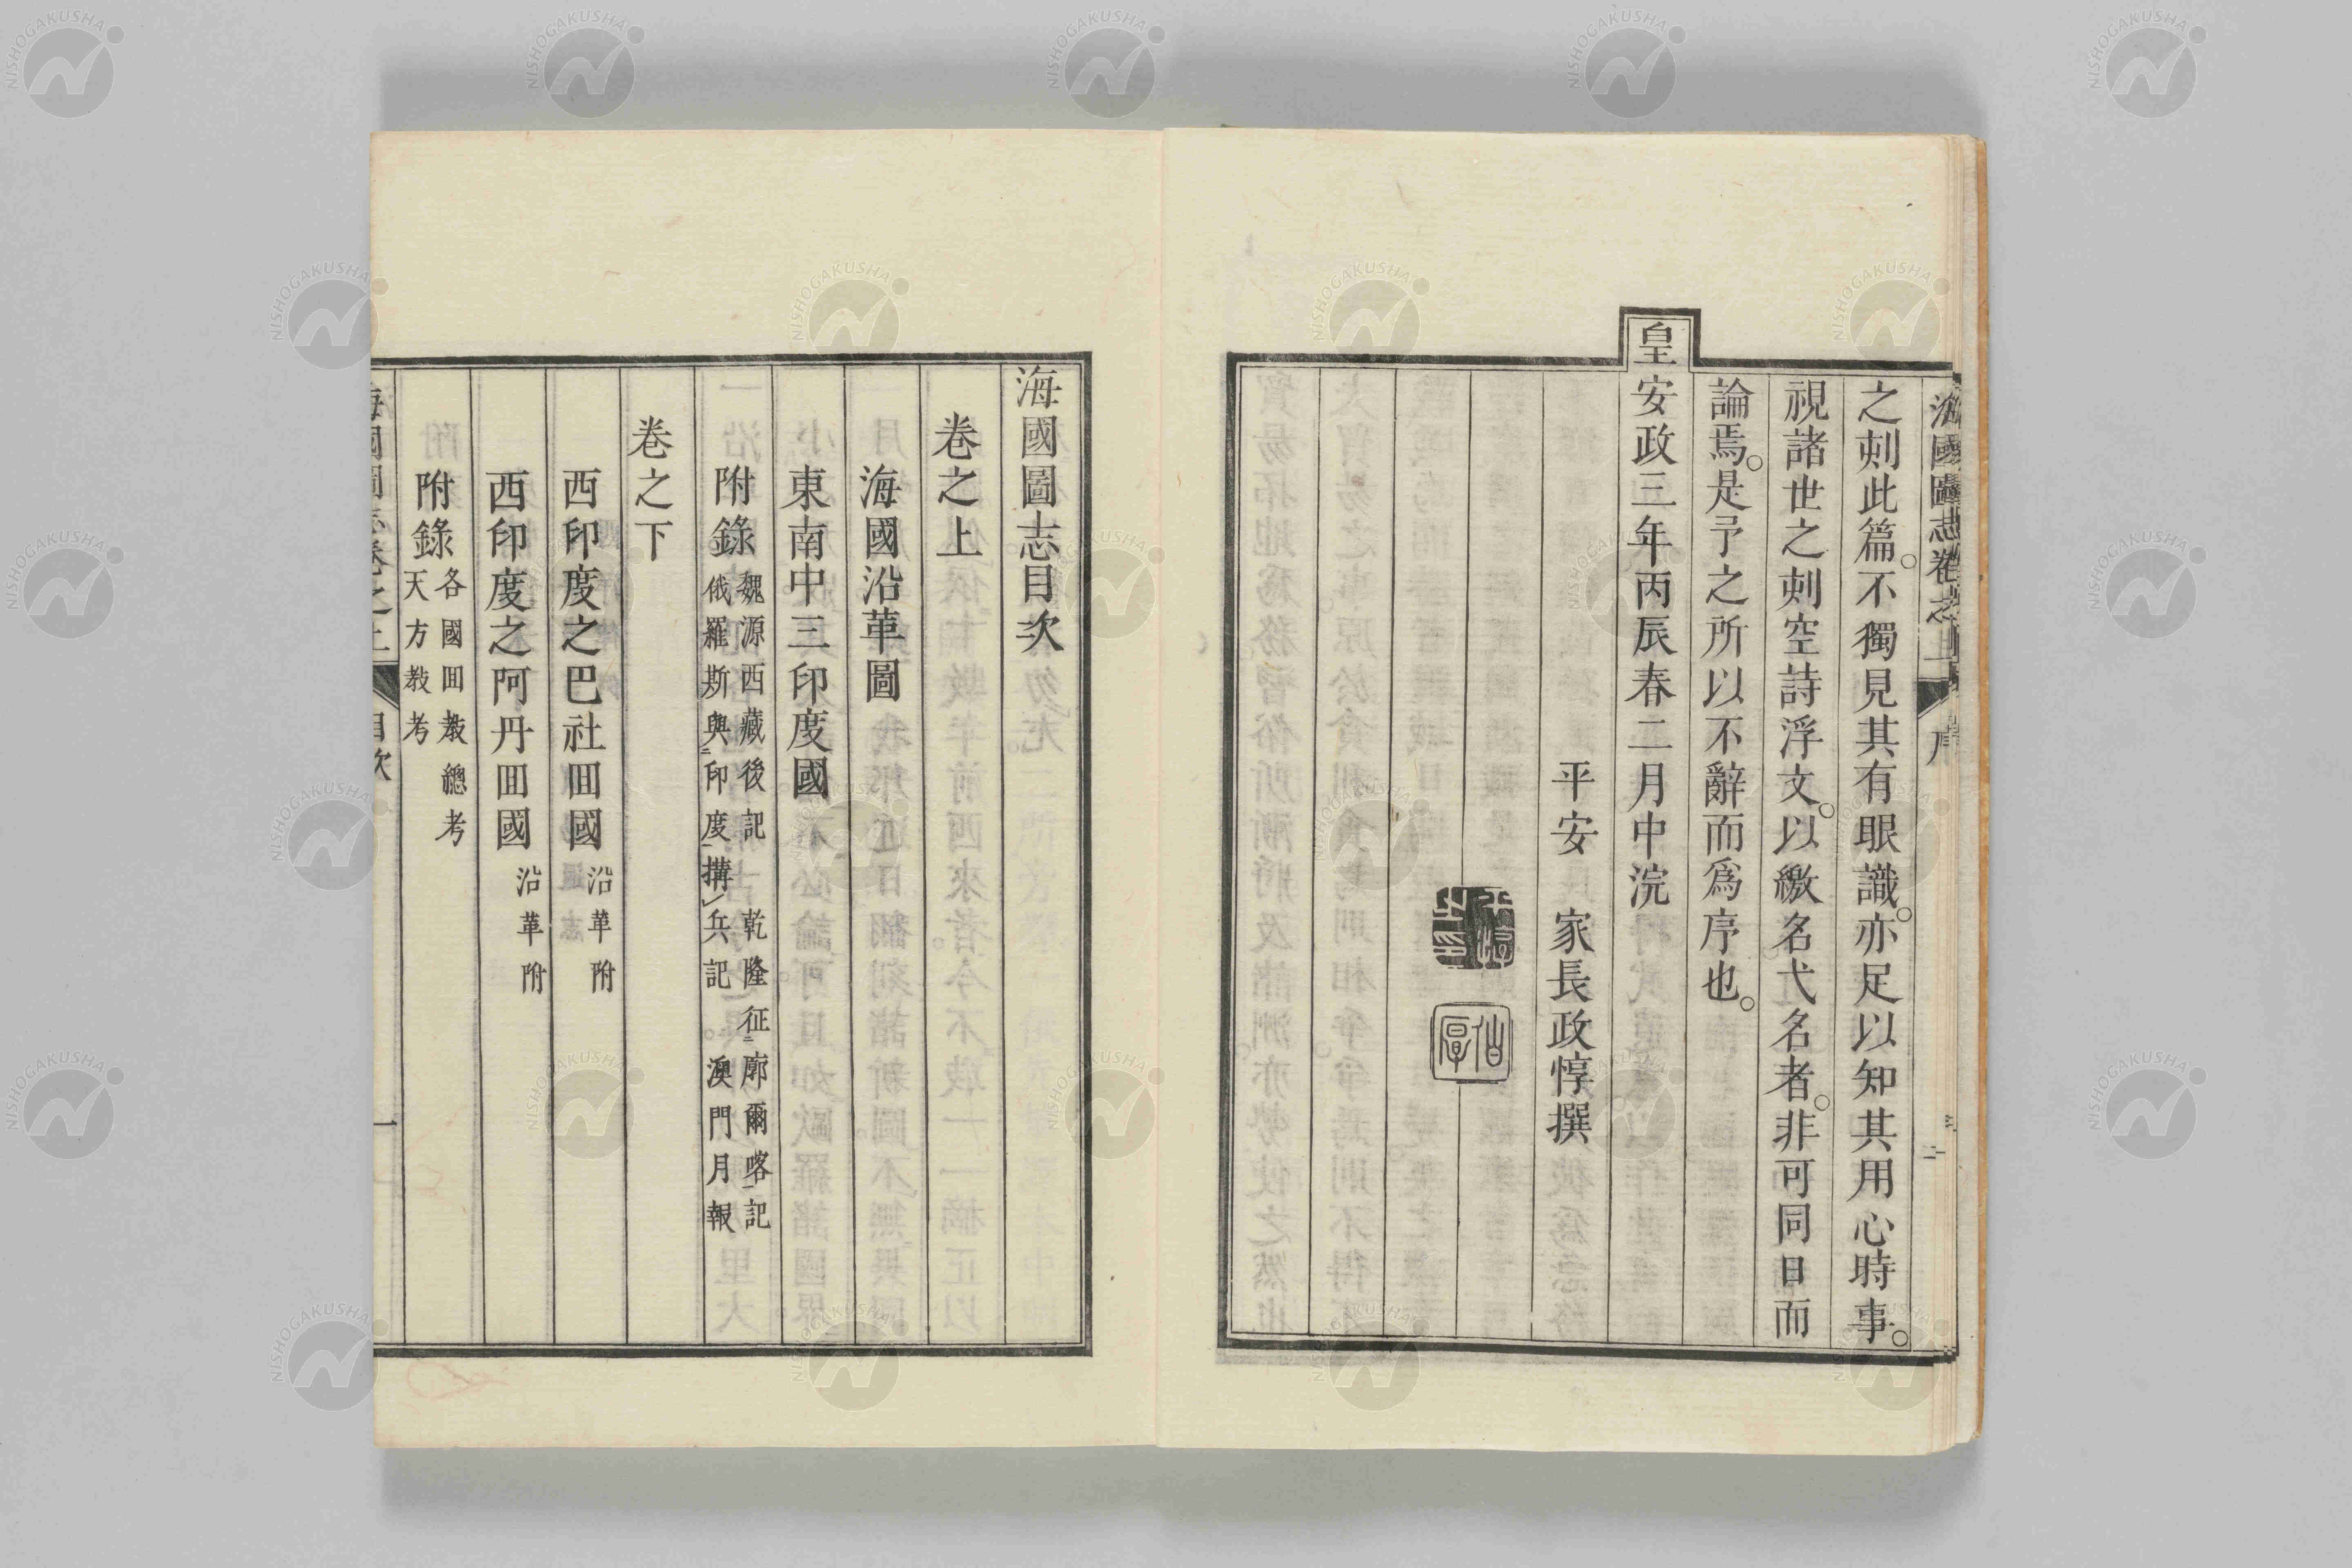 海國圖志卷之上 序 二
之刺此篇。不獨見其有眼識。亦足以知其用心時事。
視諸世之刺空詩浮文。以繳名弋名者。非可同日而
論焉。是予之所以不辭而爲序也。
皇安政三年丙辰春二月中浣
平安 家長政惇撰
海國圖志目次
卷之上
海國沿革圖
東南中三印度國
附錄 魏源西藏後記 乾隆征廓爾喀記
俄羅斯與印度搆兵記 澳門月報
卷之下
西印度之巴社囬國 沿革附
西印度之阿丹囬國 沿革附
附錄 各國囬教總考
天方教考
海國圖志卷之上 目次 一
NISHOGAKUSHA